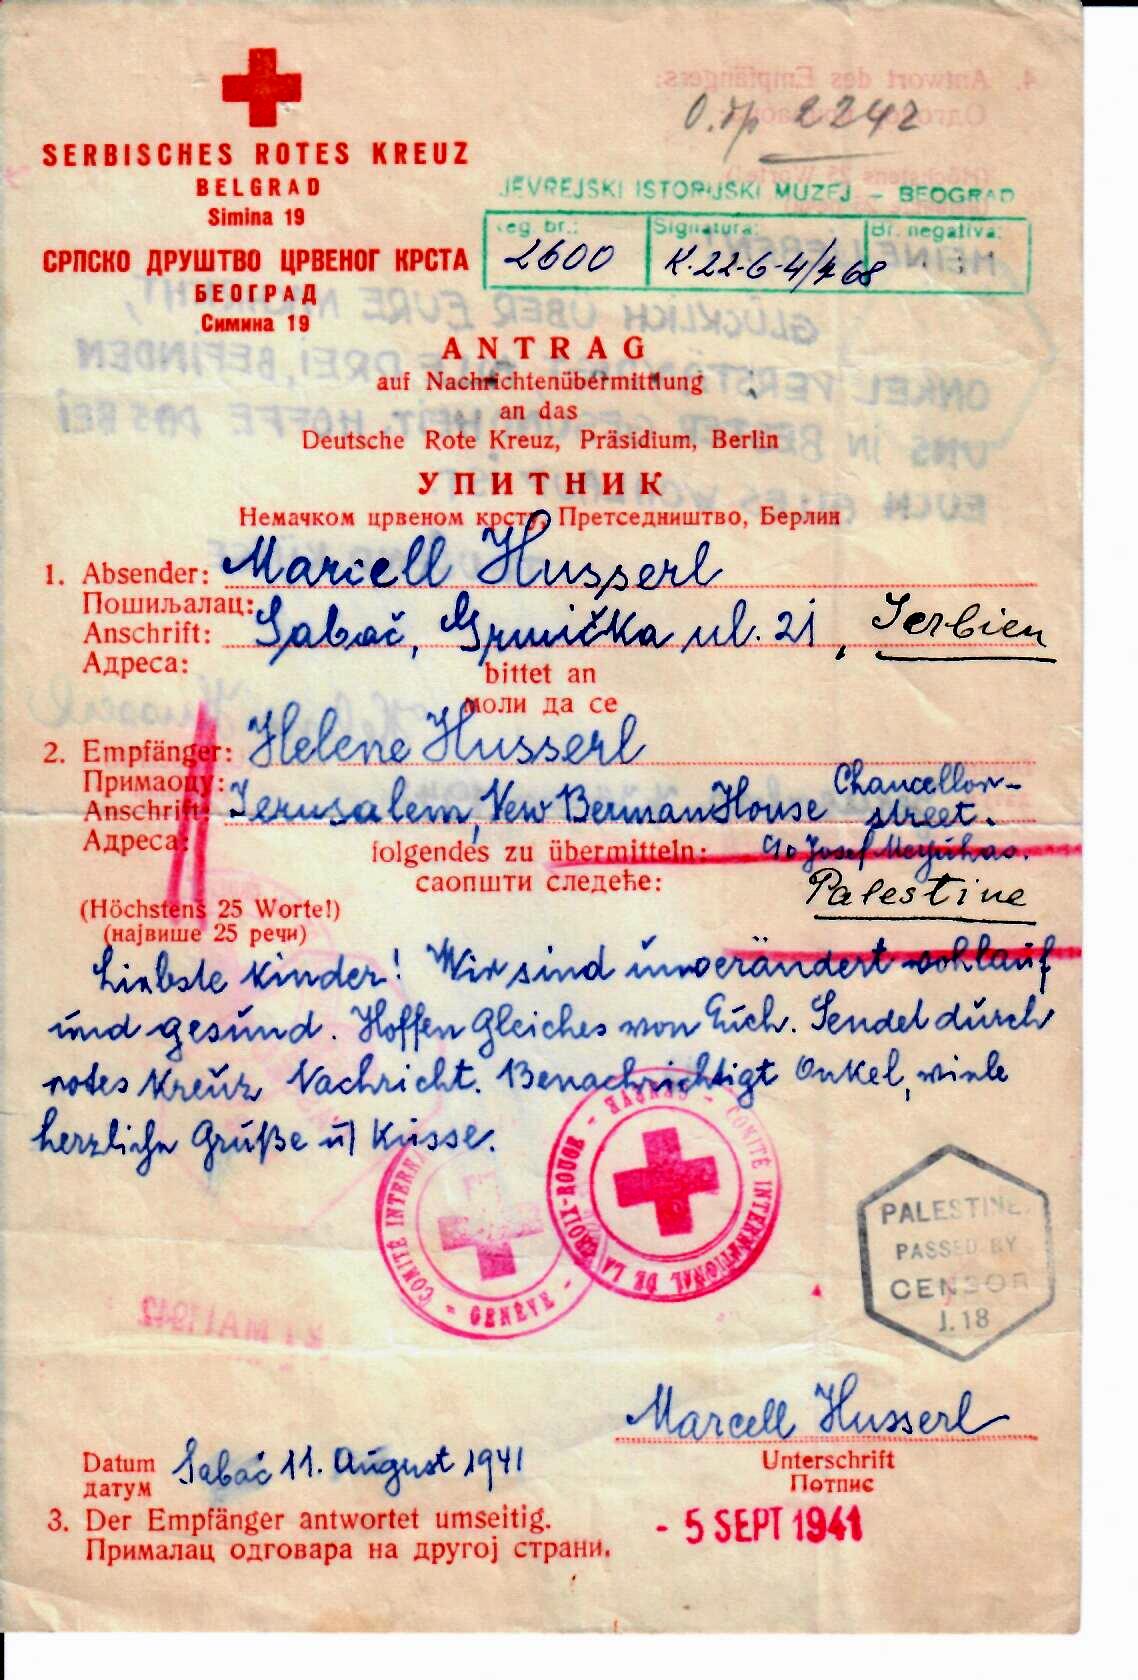 SERBISCHES ROTES KREUZ
BELGRAD
Simina 19
СРПСКО ДРУШТВО ЦРВЕНОГ КРСТА
БЕОГРАД
Симина 19
2242
JEVREJSKI ISTORIJSKI MUZEJ – BEOGRAD
eg. br.: Signatura: Br. negativa:
2600 K.22-6-4/768
ANTRAG
auf Nachrichtenübermittlung
an das
Deutsche Rote Kreuz, Präsidium, Berlin
УПИТНИК
Немачком црвеном крсту, Претседништво, Берлин
1. Absender: Marcell Husserl
Пошиљалац:
Anschrift: Sabač, Grmička ul. 21, Serbien
Адреса:
bittet an
моли да се
2. Empfänger: Helene Husserl
Примаоцу:
Anschrift: Jerusalem, New Berman House Chancellor-
street.
Адреса:
folgendes zu übermitteln: c/o Josef Meyuhas.
саопшти следеће: Palestine
(Höchstens 25 Worte!)
(највише 25 речи)
Liebste Kinder! Wir sind unverändert wohlauf
und gesund. Hoffen Gleiches von Euch. Sendet durch
rotes Kreuz Nachricht. Benachrichtigt Onkel, viele
herzliche Grüße u Küsse.
COMITÉ INTERNATIONAL DE LA CROIX-ROUGE – GENÈVE –
COMITÉ INTERNA – GENÈVE –
PALESTINE
PASSED BY
CENSOR
J.18
Marcell Husserl
Unterschrift
Потпис
Datum Sabač 11. August 1941
датум
3. Der Empfänger antwortet umseitig.
Прималац одговара на другој страни.
- 5 SEPT 1941